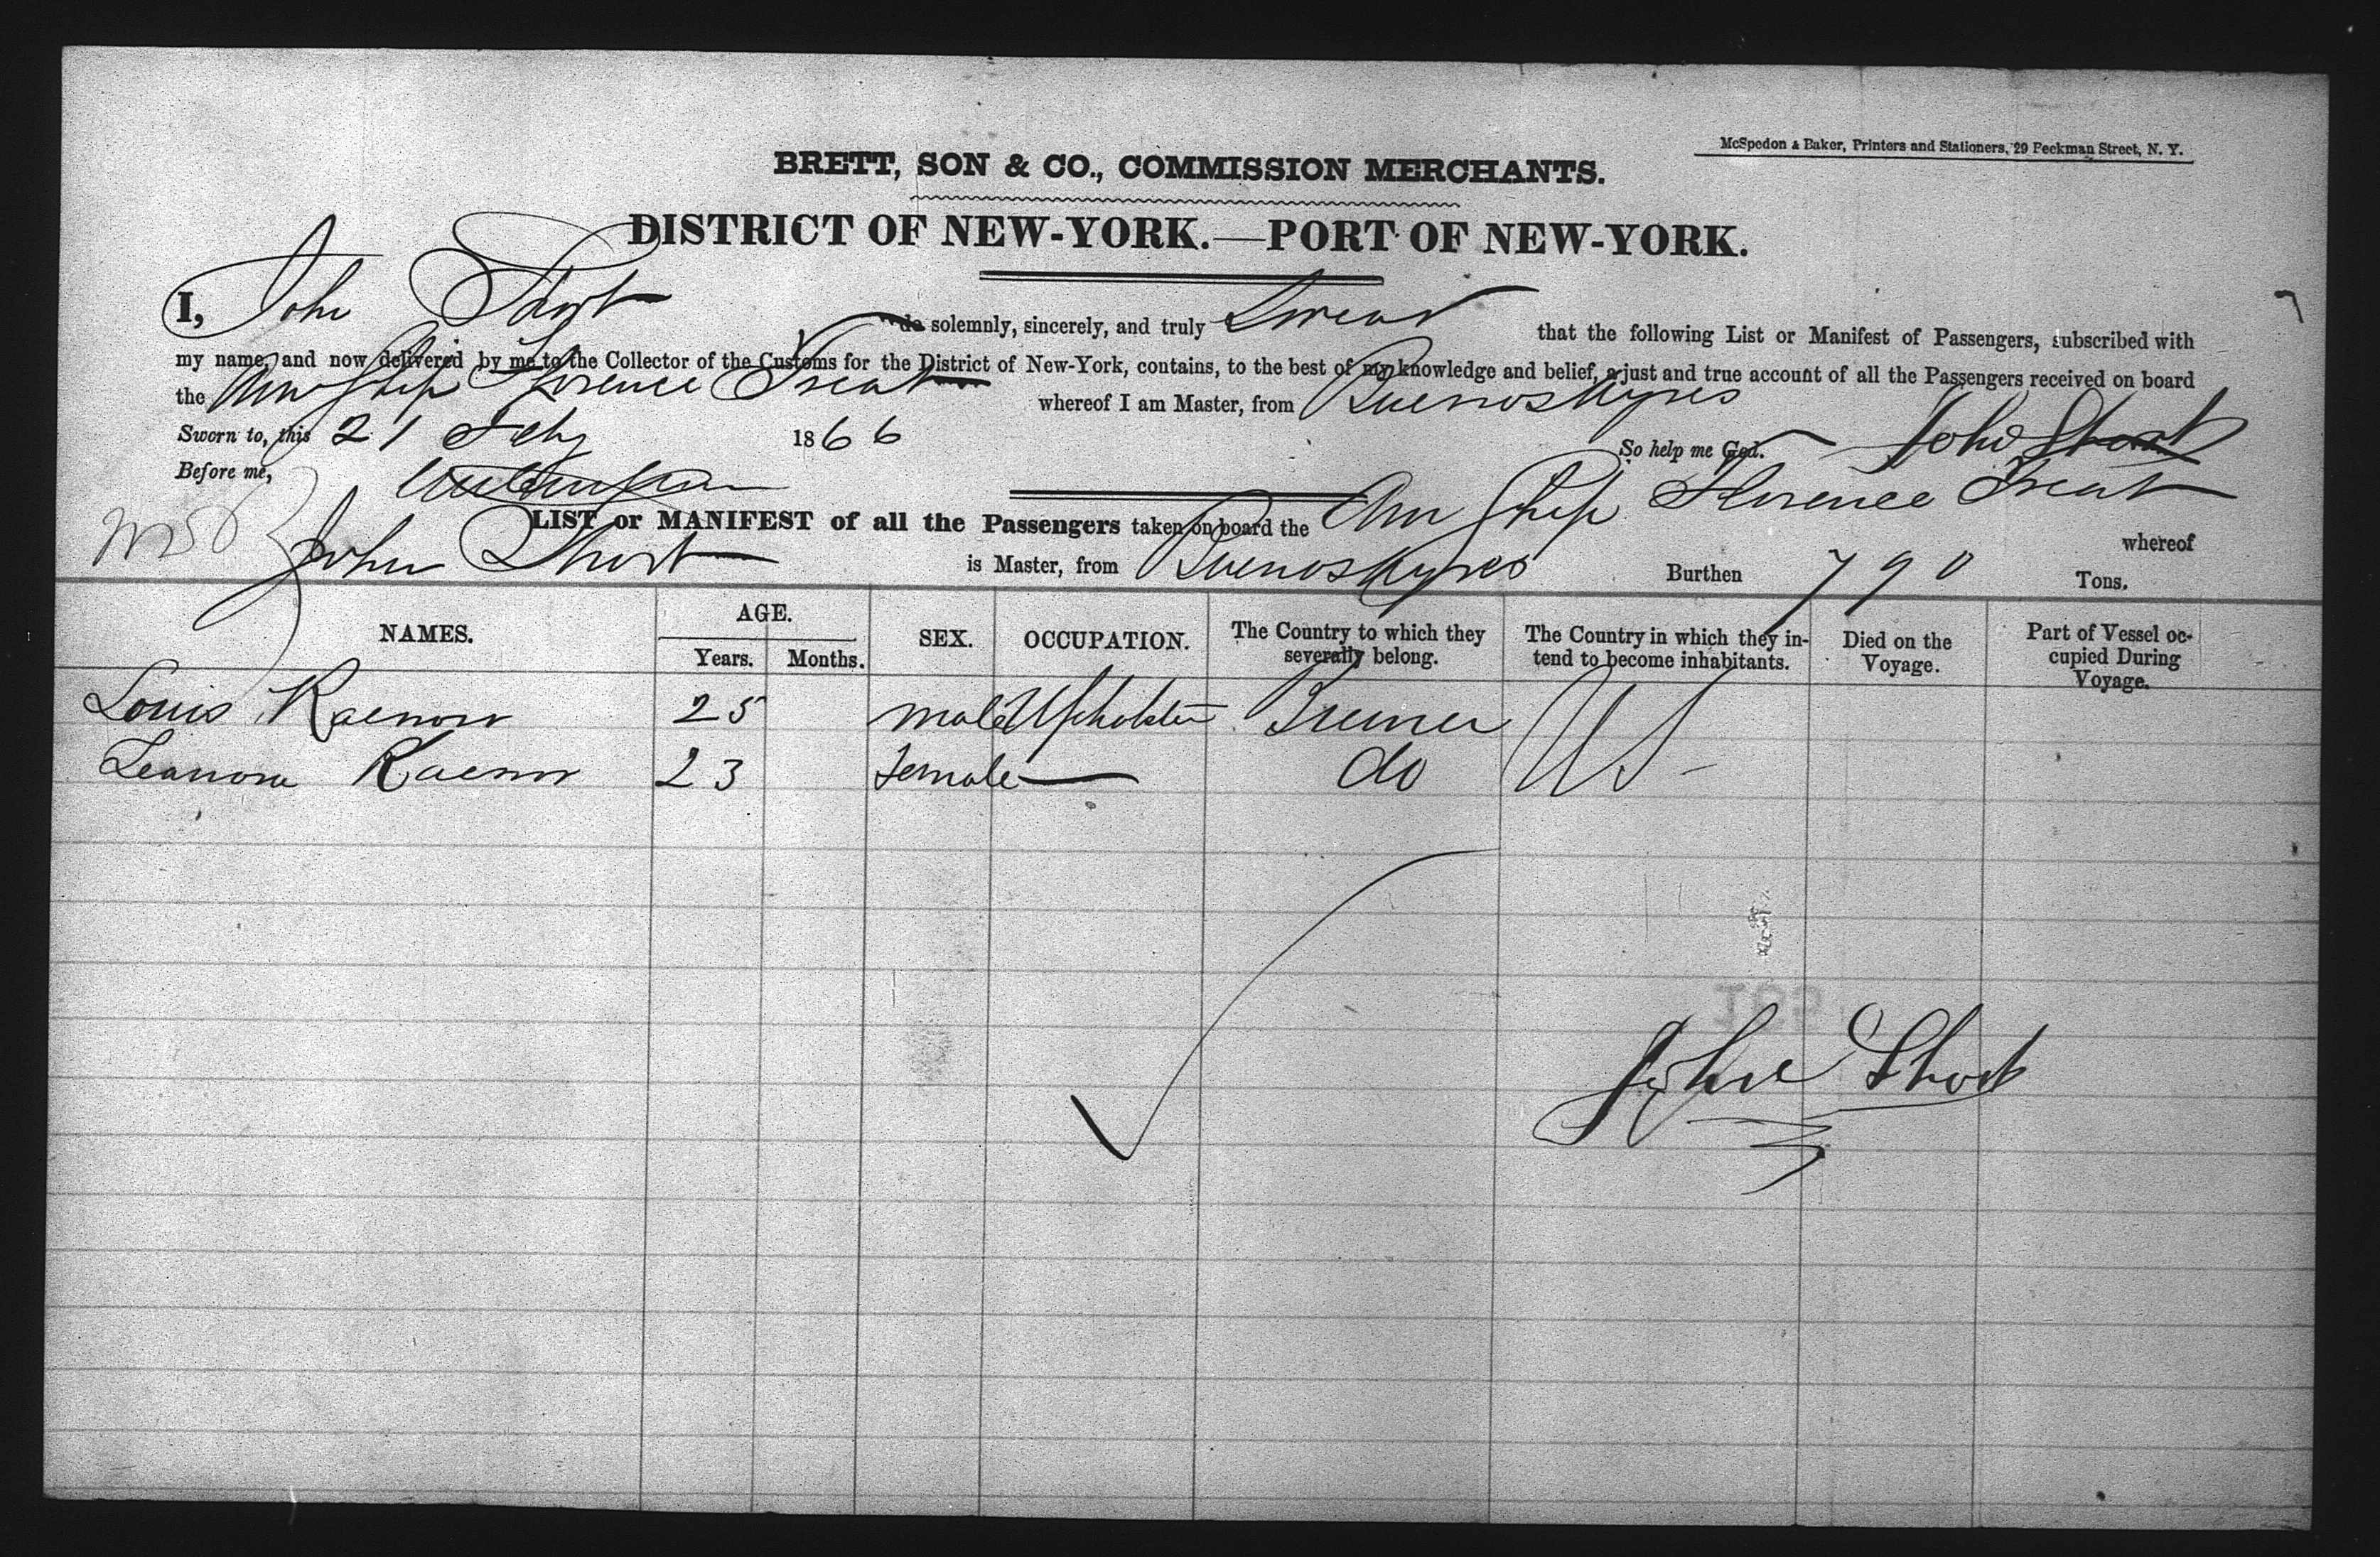 McSpedon & Baker, Printers and Stationers, 29 Beekman Street, N. Y.
BRETT, SON & CO., COMMISSION MERCHANTS.
DISTRICT OF NEW-YORK.—PORT OF NEW-YORK.
I, John Short do solemnly, sincerely, and truly Swear that the following List or Manifest of Passengers, subscribed with
my name, and now delivered by me to the Collector of the Customs for the District of New-York, contains, to the best of my knowledge and belief, a just and true account of all the Passengers received on board
the Am Ship Florence Treat whereof I am Master, from Buenos Ayres
Sworn to, this 21 Feby 1866 So help me God. John Short
Before me,
LIST or MANIFEST of all the Passengers taken on board the Am Ship Florence Treat whereof
John Short is Master, from Buenos Ayres Burthen 790 Tons.
NAMES. AGE. Years. Months. SEX. OCCUPATION. The Country to which they severally belong. The Country in which they intend to become inhabitants. Died on the Voyage. Part of Vessel occupied During Voyage.
Louis 25 male Bremen US
Leanora 23 female — do
John Short